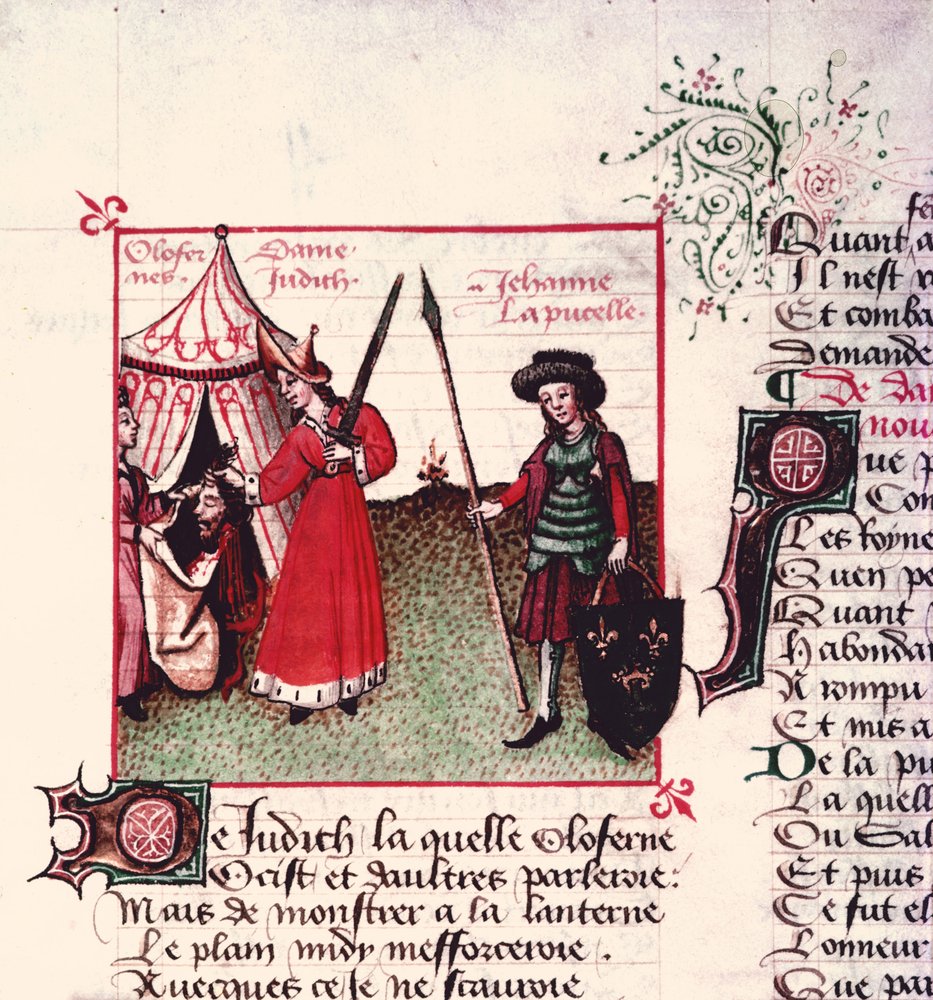 Olofer
nes.
Dame
Judith.
Jehanne
La pucelle.
De Judith la quelle Oloferne
Ocist et daultres parleroie:
Mais de monstrer a la lanterne
Le plain midy mefforceroie.
Avecques ce Je ne scauroie
Quant
Il nest
Et comba
Demande
De da
nou
ue
Con
Les Royne
Quen pe
Quant
habonda
A rompu
Et mis a
De la pu
La quell
Ou Sal
Et puis
Ce fut el
Lonneur
Que par